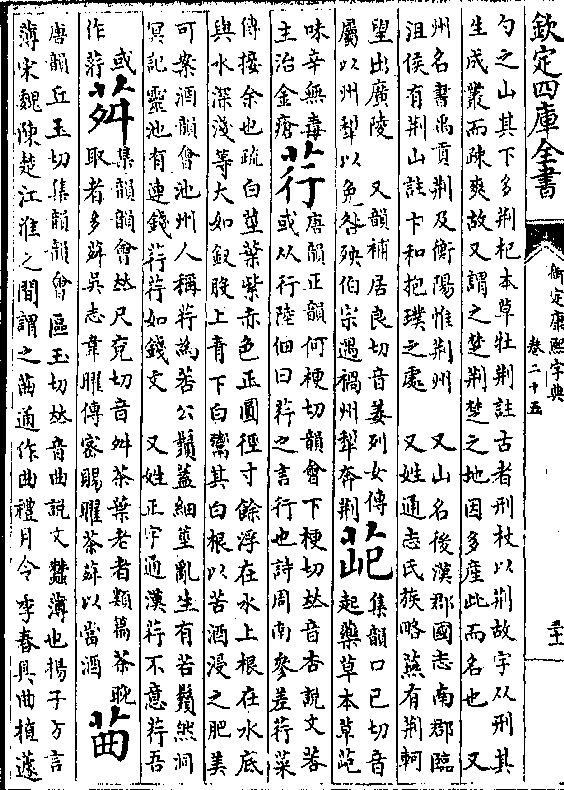 欽定四庫全書
御定康熙字典
卷二十五
勺之山其下多荆杞本草牡荆註古者刑杖以荆故字从刑其
生成叢而疎爽故又謂之楚荆楚之地因多産此而名也 又
州名書禹貢荆及衡陽惟荆州 又山名後漢郡國志南郡臨
沮侯有荆山註卞和抱璞之處 又姓通志氏族略燕有荆軻
望出廣陵 又韻補居良切音姜列女傳
屬以州犂以免咎殃伯宗遇禍州犂奔荆
𦯆
集韻口已切音
起藥草本草𦯆
味辛無毒
主治金瘡
荇
唐韻正韻何梗切韻會下梗切𠀤音杏說文莕
或从行陸佃曰荇之言行也詩周南參差荇菜
傳接余也疏白莖葉紫赤色正圓徑寸餘浮在水上根在水底
與水深淺等大如釵股上青下白鬻其白根以苦酒浸之肥美
可案酒韻會池州人稱荇為莕公鬚蓋細莖亂生有若鬚然洞
冥記靈池有連錢荇荇如錢文 又姓正字通漢荇不意荇吾
或
作莕
荈
集韻韻會𠀤尺兖切音舛茶葉老者類篇茶晚
取者多荈吳志韋曜傳密賜曜茶荈以當酒
𦱊
唐韻丘玉切集韻韻會區玉切𠀤音曲說文蠶薄也揚子方言
薄宋魏陳楚江淮之間謂之𦱊通作曲禮月令季春具曲植籧